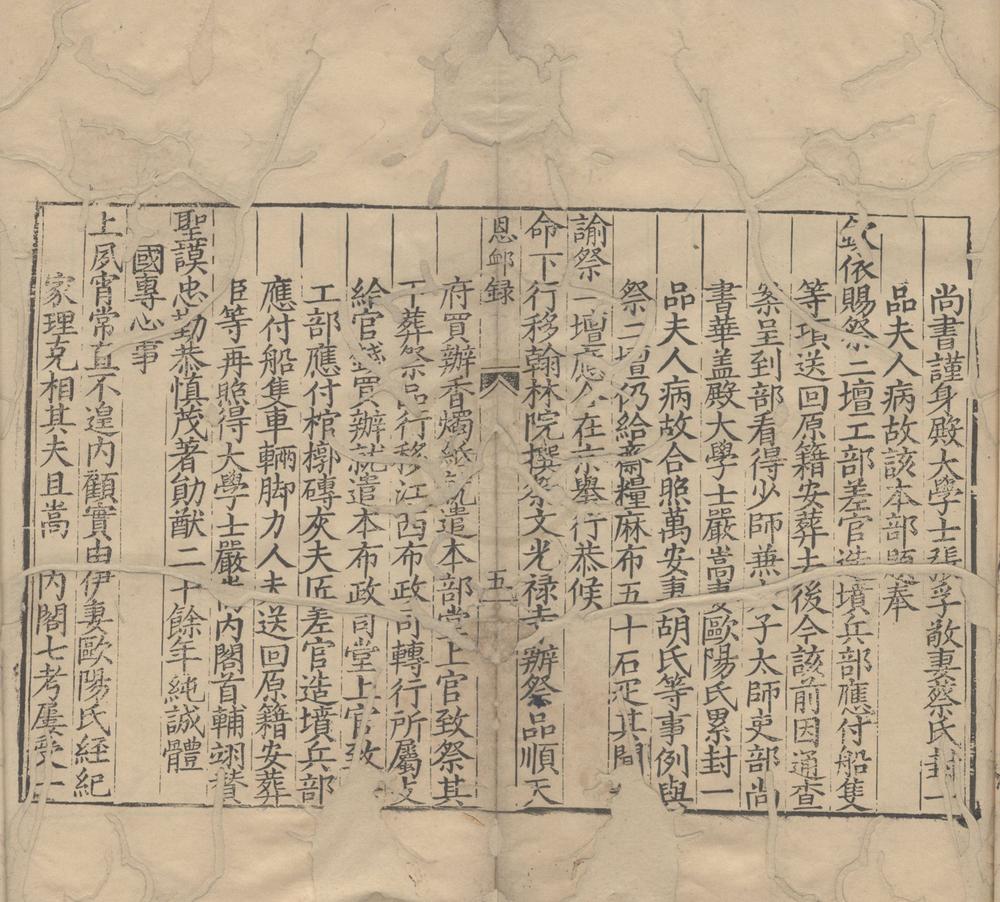 尚書謹身殿大學士張孚敬妻蔡氏封一
品夫人病故該本部題奉
欽依賜祭二壇工部差官造墳兵部應付船隻
等項送回原籍安葬去後今該前因通查
案呈到部看得少師兼太子太師吏部尚
書華盖殿大學士嚴嵩妻歐陽氏累封一
品夫人病故合照萬安妻胡氏等事例與
祭二壇仍給齋糧麻布五十石疋其間
諭祭一壇應合在京舉行恭候
命下行移翰林院撰祭文光禄寺辦祭品順天
恩卹録
五
府買辦香燭紙就遣本部堂上官致祭其
下葬祭品行移江西布政司轉行所屬支
給官錢買辦就遣本布政司堂上官致
工部應付棺槨磚灰夫匠差官造墳兵部
應付船隻車輛脚力人夫送回原籍安葬
臣等再照得大學士嚴嵩内閣首輔翊賛
聖謨忠勤恭慎茂著勛猷二十餘年純誠體
國專心事
上夙宵常直不遑内顧實由伊妻歐陽氏經紀
家理克相其夫且嵩内閣七考屢受一